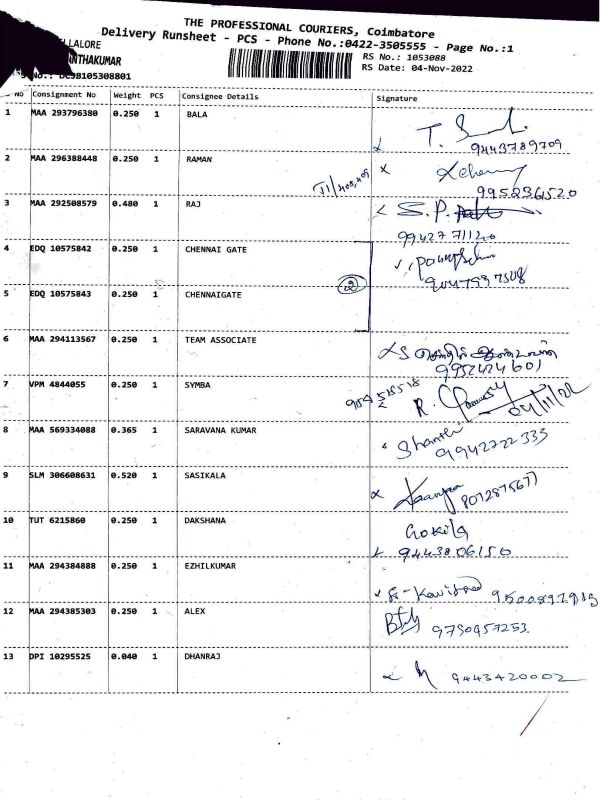 THE PROFESSIONAL COURIERS, Coimbatore
Delivery Runsheet - PCS - Phone No.:0422-3505555 - Page No.:1
ELLALORE
NTHAKUMAR
RS No.: 1053088
RS Date: 04-Nov-2022
No.: DCSB105308801
No Consignment No Weight PCS Consignee Details Signature
1 MAA 293796380 0.250 1 BALA
9443789709
2 MAA 296388448 0.250 1 RAMAN
9952364520
3 MAA 292508579 0.480 1 RAJ S.P.
9942771120
4 EDQ 10575842 0.250 1 CHENNAI GATE
9047997508
5 EDQ 10575843 0.250 1 CHENNAIGATE 2
6 MAA 294113567 0.250 1 TEAM ASSOCIATE
9952424601
7 VPM 4844055 0.250 1 SYMBA
04/11/22
8 MAA 569334088 0.365 1 SARAVANA KUMAR Shanthi
9942722333
9 SLM 306608631 0.520 1 SASIKALA
8072875677
10 TUT 6215860 0.250 1 DAKSHANA Gokila
9443806150
11 MAA 294384888 0.250 1 EZHILKUMAR
12 MAA 294385303 0.250 1 ALEX
9790957253
13 DPI 10295525 0.040 1 DHANRAJ
9443420002